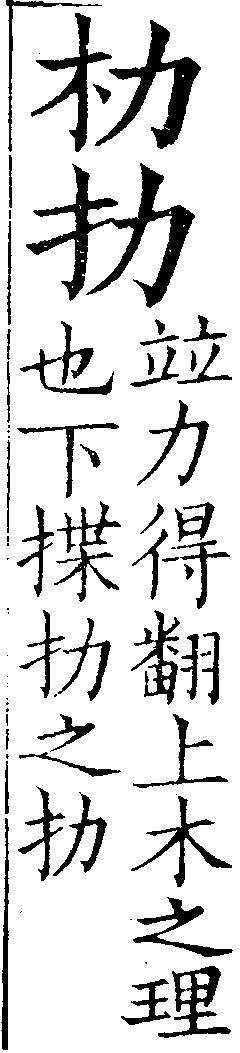 朸扐
竝力得翻上木之理
也下揲扐之扐